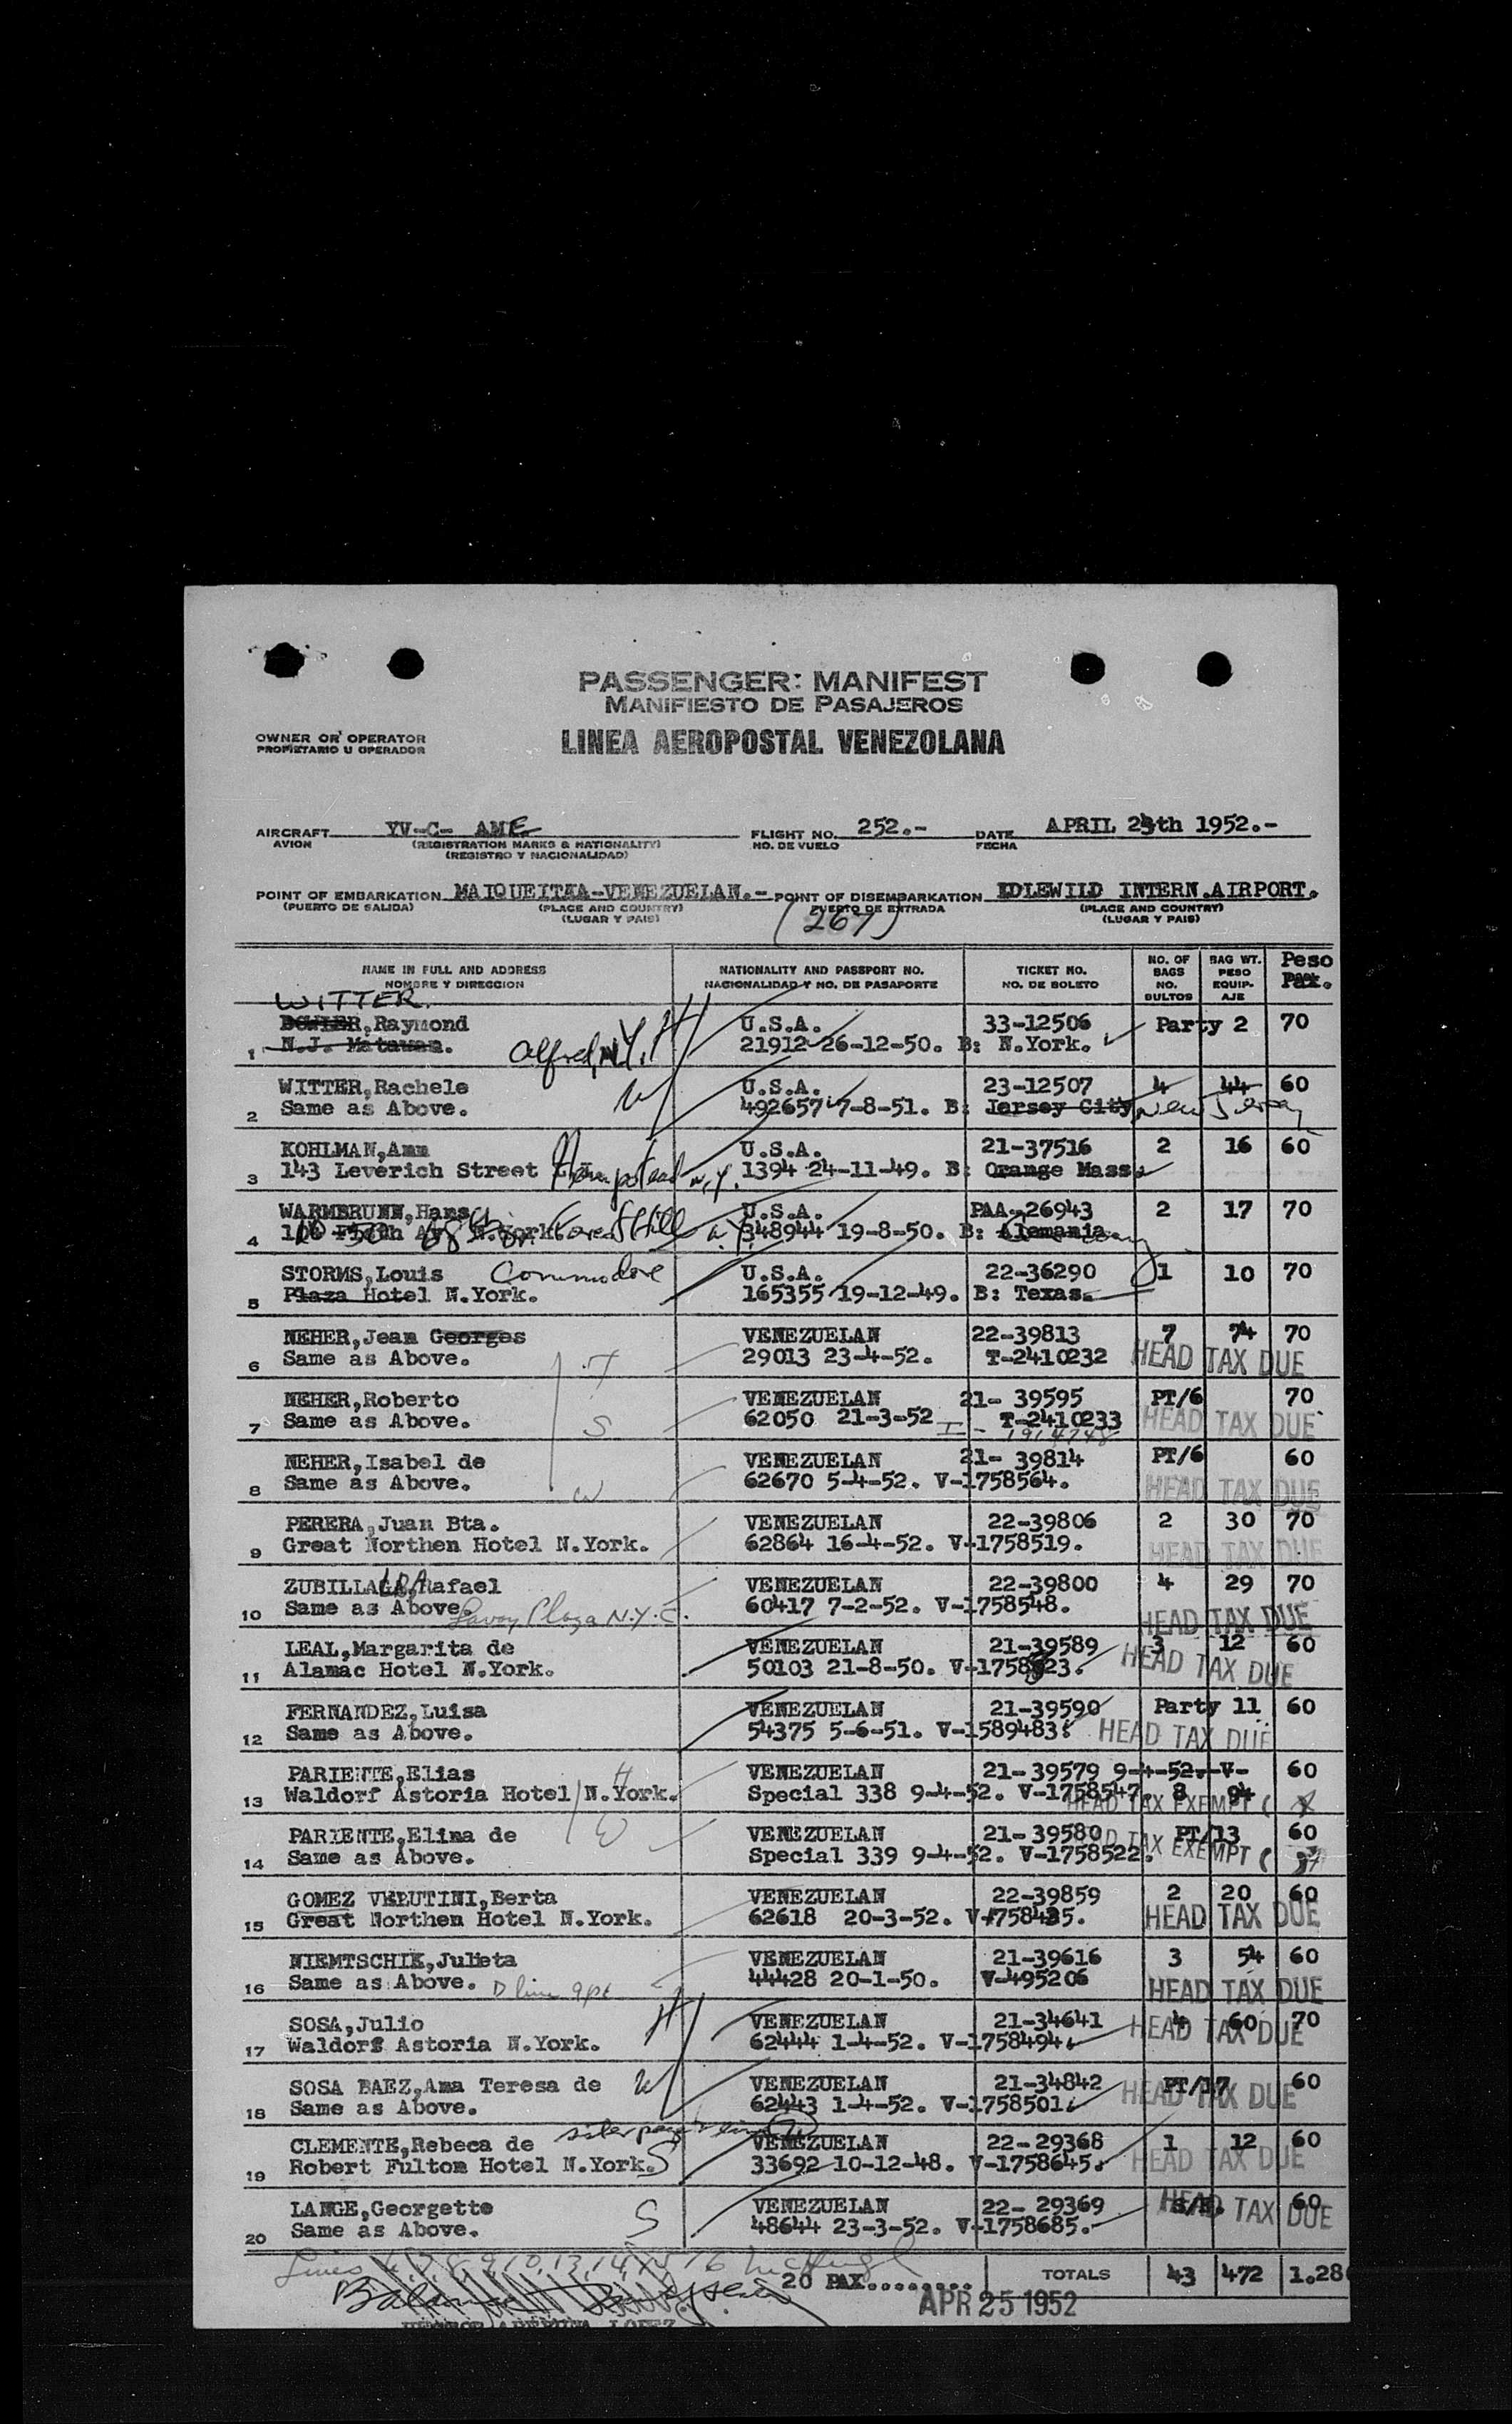 PASSENGER: MANIFEST
MANIFIESTO DE PASAJEROS
OWNER OR OPERATOR
PROPIETARIO U OPERADOR
LINEA AEROPOSTAL VENEZOLANA
AIRCRAFT YV-C- AME FLIGHT NO. 252.- DATE APRIL 25th 1952.-
AVION (REGISTRATION MARKS & NATIONALITY) NO. DE VUELO FECHA
(REGISTRO Y NACIONALIDAD)
POINT OF EMBARKATION MAIQUEITAA-VENEZUELAN.- POINT OF DISEMBARKATION IDLEWILD INTERN.AIRPORT.
(PUERTO DE SALIDA) (PLACE AND COUNTRY) PUERTO DE ENTRADA (PLACE AND COUNTRY)
(LUGAR Y PAIS) (267) (LUGAR Y PAIS)
NAME IN FULL AND ADDRESS NATIONALITY AND PASSPORT NO. TICKET NO. NO. OF BAGS BAG WT. Peso
NOMBRE Y DIRECCION NACIONALIDAD Y NO. DE PASAPORTE NO. DE BOLETO NO. BULTOS PESO EQUIP-AJE Pax.
WITTER
Raymond U.S.A. 33-12506 Party 2 70
1 N.J. Matawan. Alfred, N.Y. H 21912 26-12-50. B: N.York.
WITTER,Rachele W U.S.A. 23-12507 4 44 60
2 Same as Above. 492657 7-8-51. B: Jersey City New Jersey
KOHLMAN,Ann U.S.A. 21-37516 2 16 60
3 143 Leverich Street Hempstead N.Y. 1394 24-11-49. B: Orange Mass.
WARMBRUNN,Hans U.S.A. PAA-26943 2 17 70
4 N.York. Forest Hill N.Y. 348944 19-8-50. B: Alemania
STORMS,Louis Commodore U.S.A. 22-36290 1 10 70
5 Plaza Hotel N.York. 165355 19-12-49. B: Texas.
NEHER,Jean Georges VENEZUELAN 22-39813 7 74 70
6 Same as Above. H 29013 23-4-52. T-2410232 HEAD TAX DUE
NEHER,Roberto VENEZUELAN 21- 39595 PT/6 70
7 Same as Above. S 62050 21-3-52 T-2410233 HEAD TAX DUE
I - 1914748
NEHER,Isabel de VENEZUELAN 21- 39814 PT/6 60
8 Same as Above. W 62670 5-4-52. V-1758564. HEAD TAX DUE
PERERA,Juan Bta. VENEZUELAN 22-39806 2 30 70
9 Great Northen Hotel N.York. 62864 16-4-52. V-1758519. HEAD TAX DUE
ZUBILLAGA,Rafael VENEZUELAN 22-39800 4 29 70
10 Same as Above. Savoy Plaza N.Y.C. 60417 7-2-52. V-1758548. HEAD TAX DUE
LEAL,Margarita de VENEZUELAN 21-39589 3 12 60
11 Alamac Hotel N.York. 50103 21-8-50. HEAD TAX DUE
FERNANDEZ,Luisa VENEZUELAN 21-39590 Party 11 60
12 Same as Above. 54375 5-6-51. V-1589483. HEAD TAX DUE
PARIENTE,Elias H VENEZUELAN 21-39579 9-4-52.-V- 60
13 Waldorf Astoria Hotel N.York. Special 338 9-4-52. V-1758547. 8 94 HEAD TAX EXEMPT (
PARIENTE,Elina de W VENEZUELAN 21-39580 PT/13 60
14 Same as Above. Special 339 9-4-52. V-1758522. HEAD TAX EXEMPT (
GOMEZ VELUTINI,Berta VENEZUELAN 22-39859 2 20 60
15 Great Northen Hotel N.York. 62618 20-3-52. V-1758435. HEAD TAX DUE
NIEMTSCHIK,Julieta VENEZUELAN 21-39616 3 54 60
16 Same as Above. 44428 20-1-50. V-495206 HEAD TAX DUE
SOSA,Julio H VENEZUELAN 21-34641 4 60 70
17 Waldorf Astoria N.York. 62444 1-4-52. V-1758494. HEAD TAX DUE
SOSA BAEZ,Ana Teresa de W VENEZUELAN 21-34842 PT/17 60
18 Same as Above. 62443 1-4-52. V-1758501. HEAD TAX DUE
CLEMENTE,Rebeca de VENEZUELAN 22-29368 1 12 60
19 Robert Fulton Hotel N.York. S 33692 10-12-48. V-1758645. HEAD TAX DUE
LANGE,Georgette S VENEZUELAN 22- 29369 60
20 Same as Above. 48644 23-3-52. V-1758685. HEAD TAX DUE
20 PAX......... TOTALS 43 472 1.28
APR 25 1952